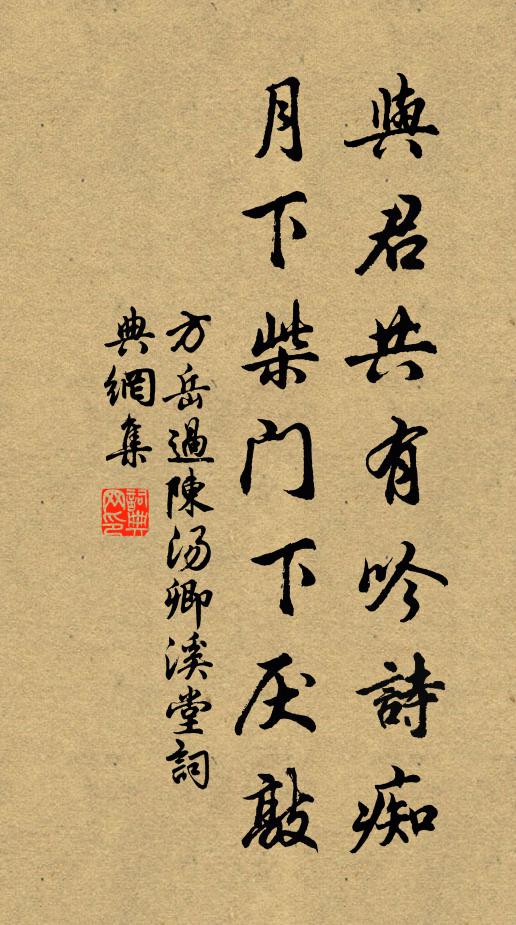 與君共有吟詩痴
月下柴门下厌敲
方岳過陳汤卿溪堂詞
典網集
詞典网印